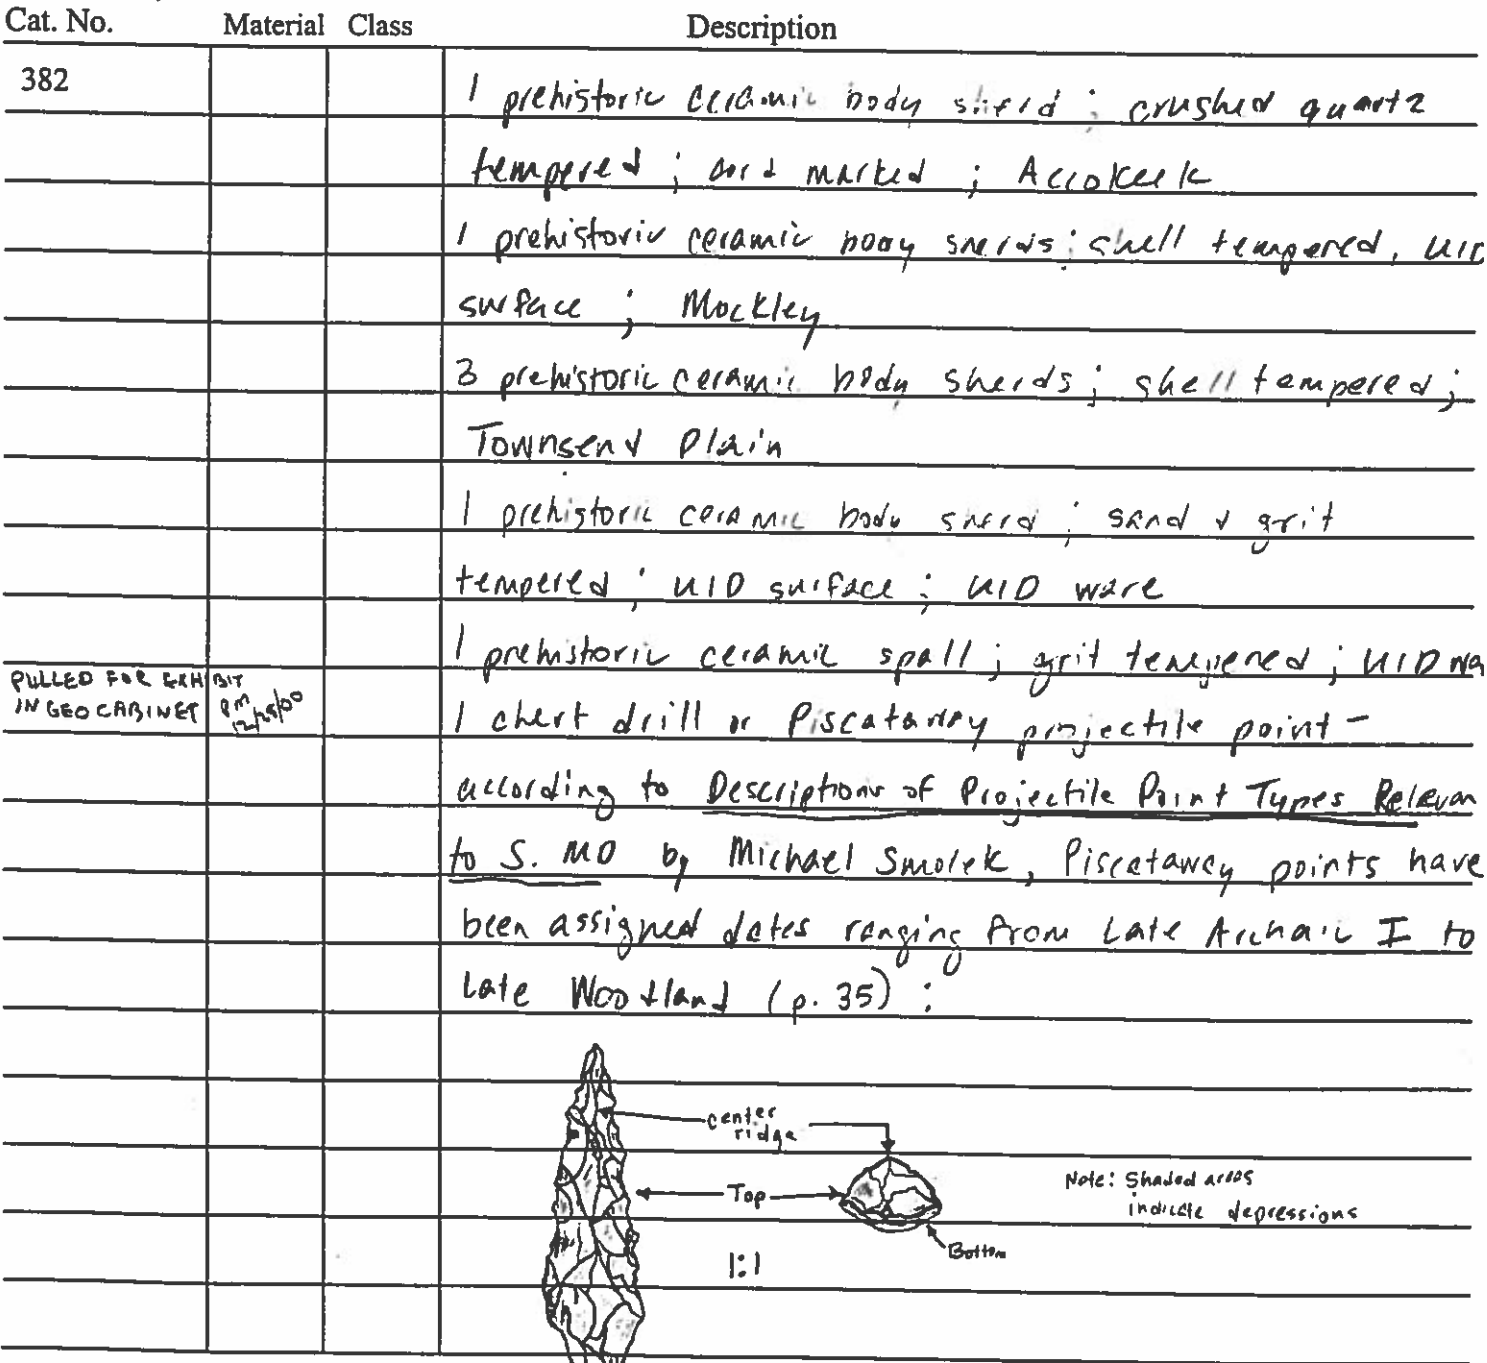 Cat. No. Material Class Description
382
1 prehistoric ceramic body sherd ; crushed quartz
tempered ; cord marked ; Accokeek
1 prehistoric ceramic body sherds ; shell tempered, UID
surface ; Mockley
3 prehistoric ceramic body sherds ; shell tempered ;
Townsend Plain
1 prehistoric ceramic body sherd ; sand & grit
tempered ; UID surface ; UID ware
1 prehistoric ceramic spall ; grit tempered ; UID wa
PULLED FOR EXHIBIT
IN GEO CABINET
1 chert drill or Piscataway projectile point -
according to Descriptions of Projectile Point Types Relevan
to S. MD by Michael Smolek, Piscataway points have
been assigned dates ranging from Late Archaic I to
Late Woodland (p. 35) :
center
ridge
Top
Bottom
1:1
Note: Shaded areas
indicate depressions